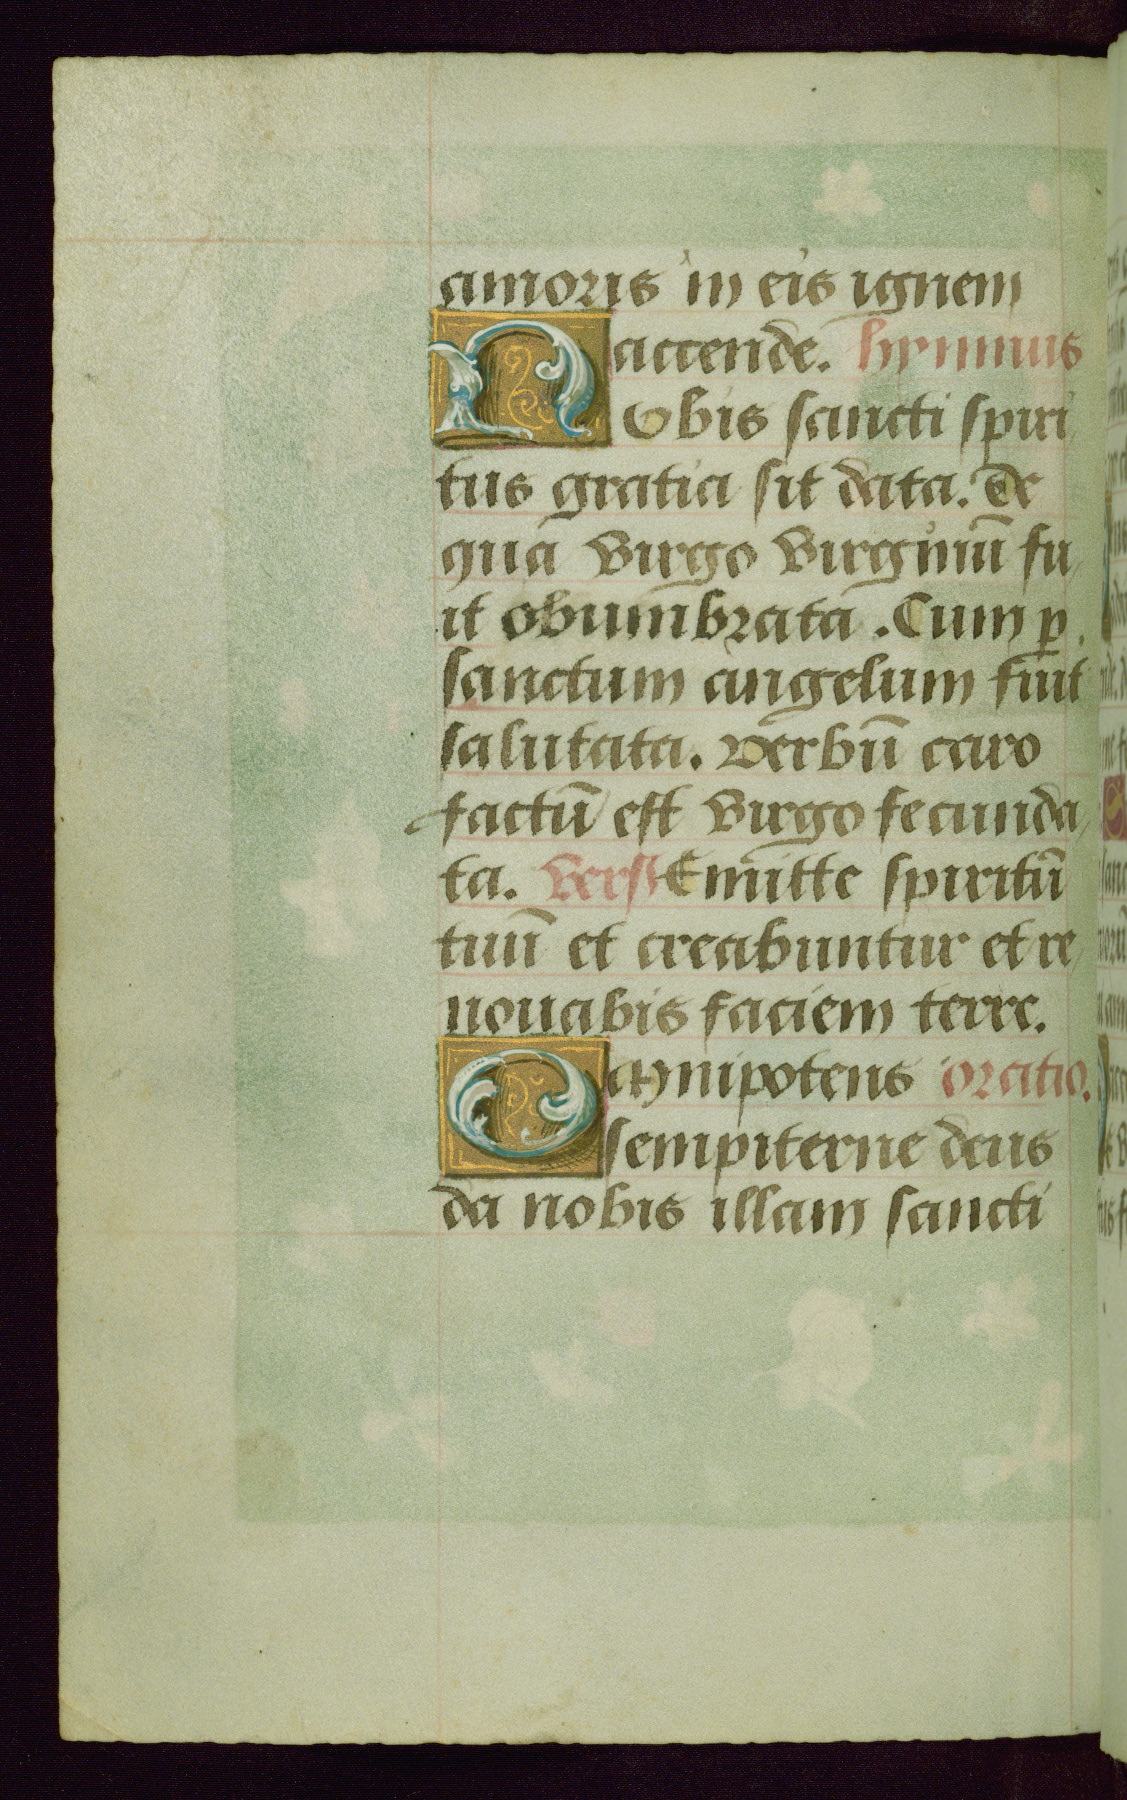 amoris in eis ignem
accende. hympnus
Nobis sancti spiri
tus gratia sit data. de
qua Virgo Virginiū fu
it obumbrata. Cum p̱
sanctum angelum fuit
salutata. Verbū caro
factū est Virgo fecunda
ta. Vers Emitte spiritū
tuū et creabuntur et re
nouabis faciem terre.
Omnipotens oratio.
sempiterne deus
da nobis illam sancti